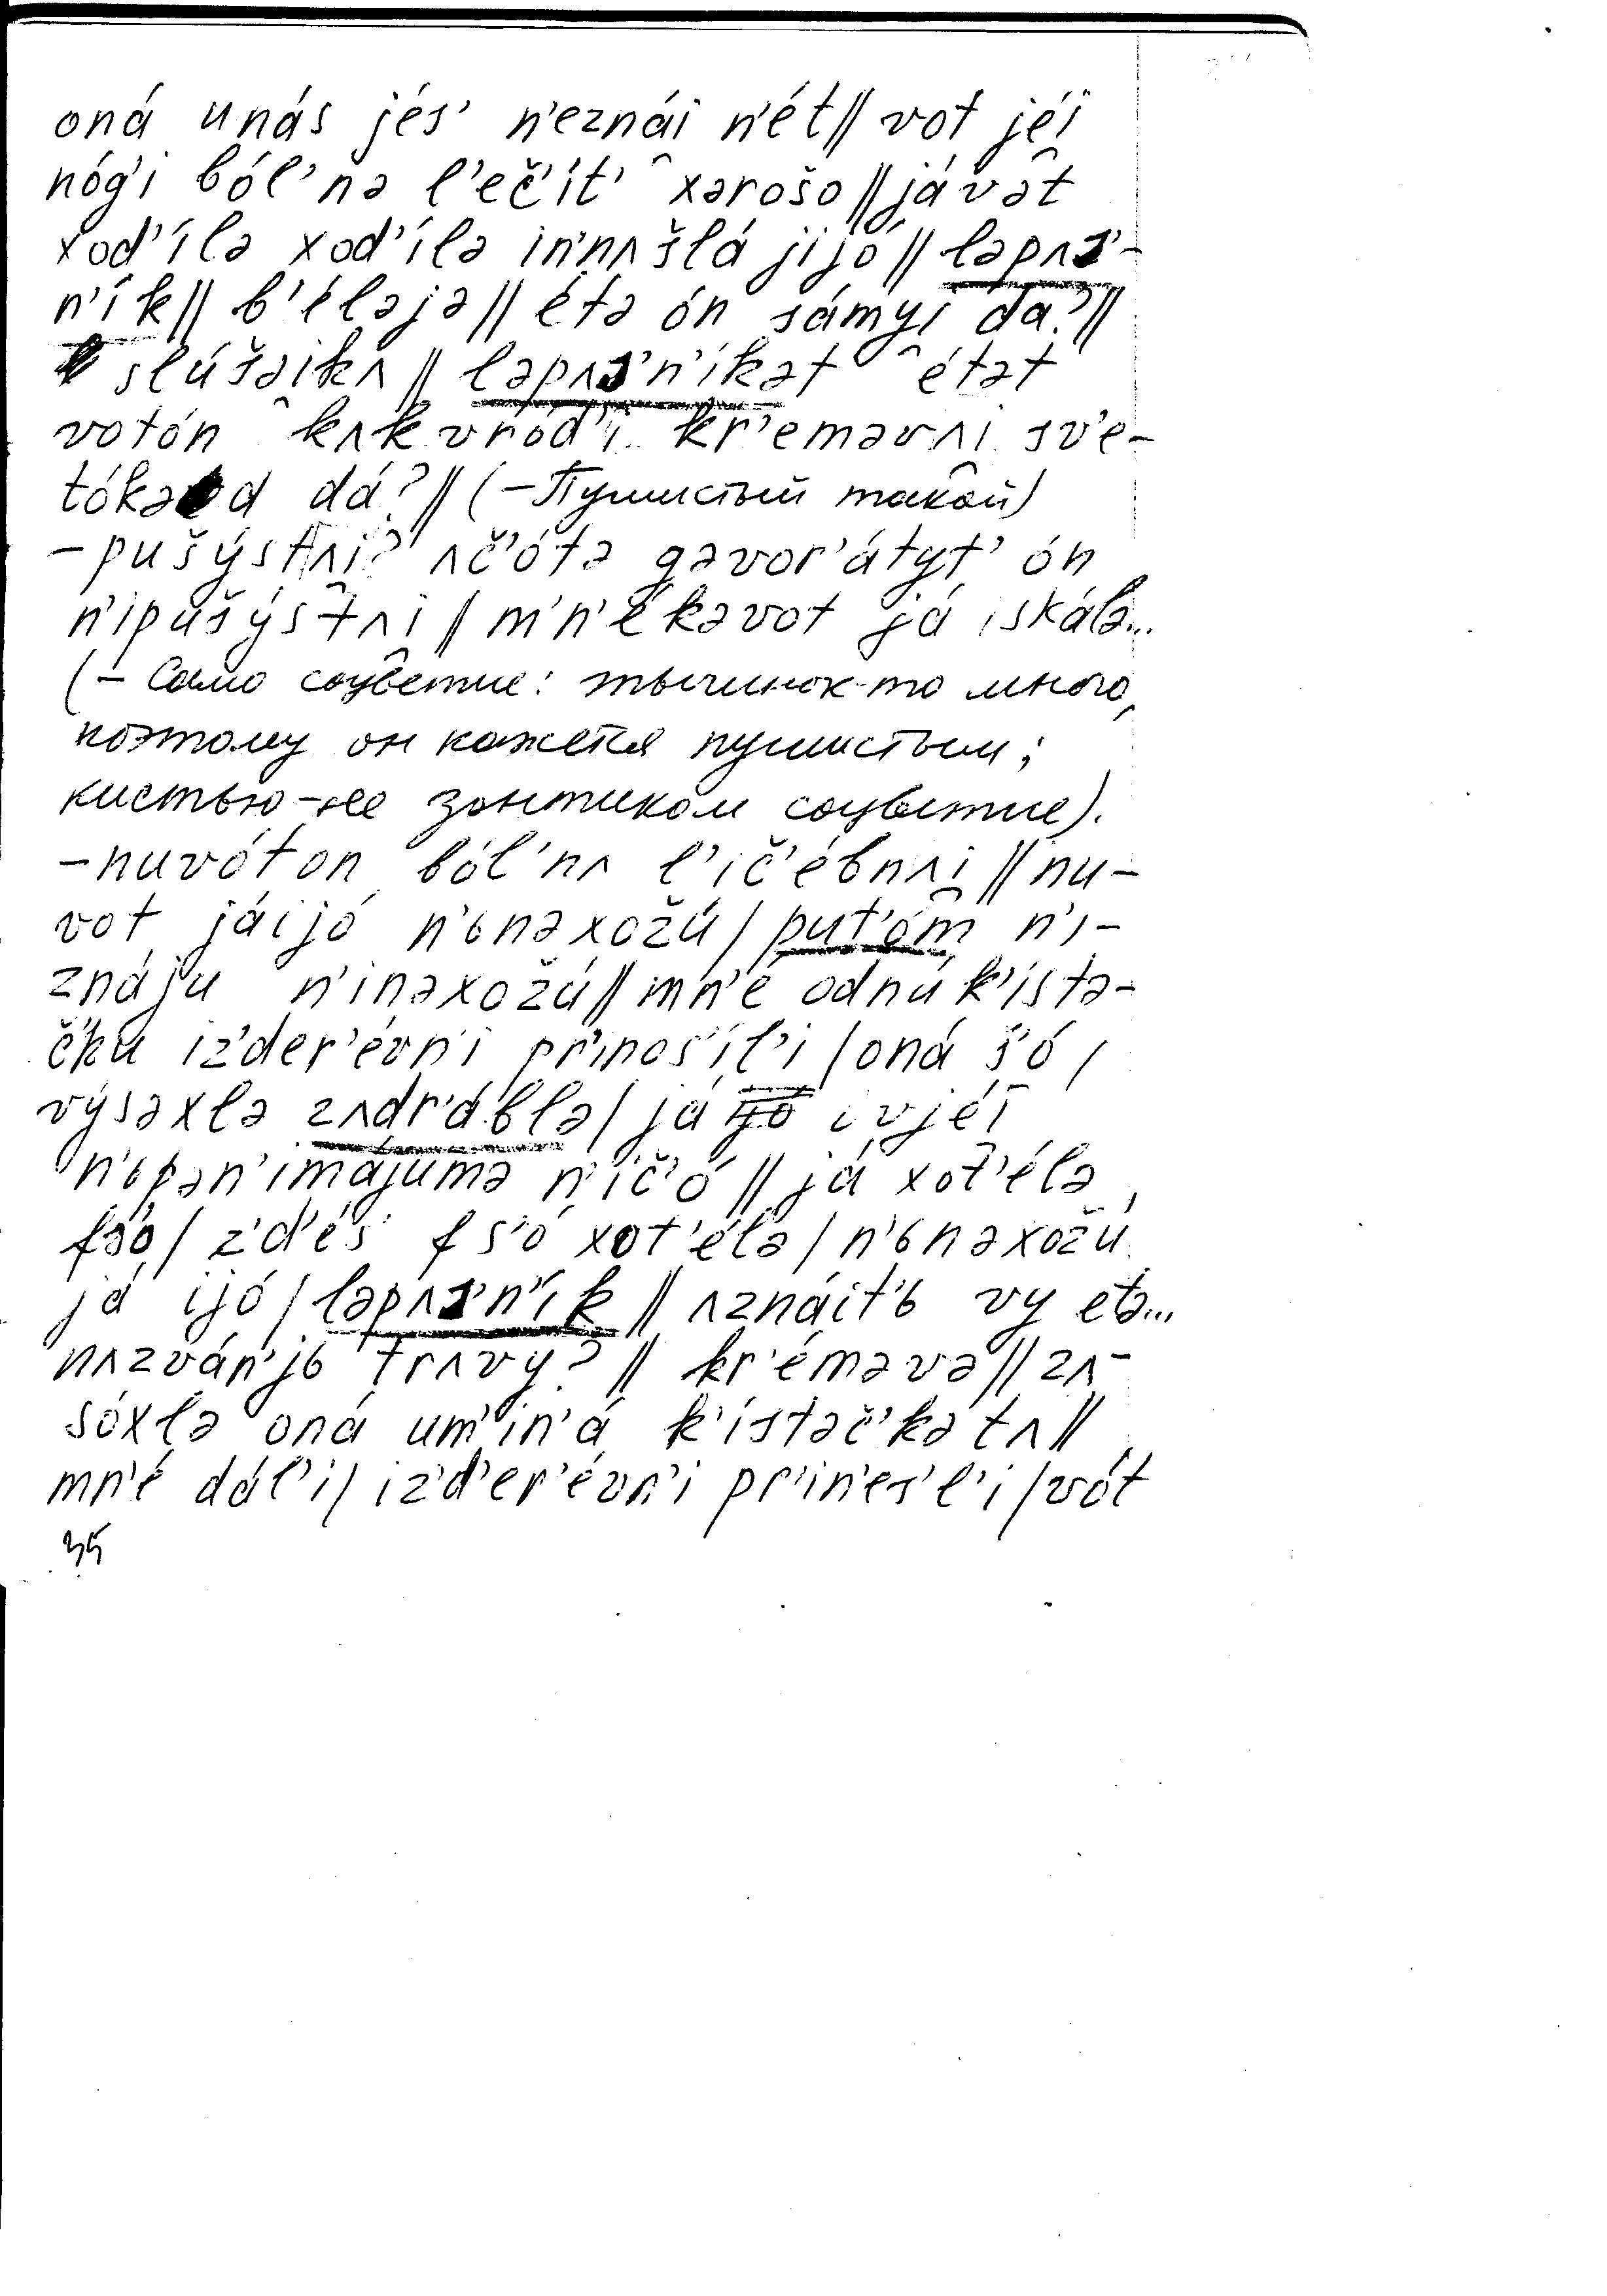 oná unás jés' n'eznái n'ét // vot jéi
nóg'i ból'nə l'eč'ít' xərošo // jávət
xod'ílə xod'ílə in'nʌšlá jijó // ləpʌs'-
n'ík // b'éləjə // étə ón sámyi da? //
slúšəikʌ // ləpʌs'n'íkət étət
votón kʌkvród'i kr'eməvʌi sv'e-
tókəd dá? // (– Пушистый такой)
– pušýstʌi? ʌč'ótə gəvor'átyt' ón
n'ipušýstʌi // m'n'ékəvot já iskálə...
(– Само соцветие: тычинок-то много,
поэтому он кажется пушистым;
кистью-не зонтиком соцветие).
– nuvót on ból'nʌ l'ič'ébnʌi // nu-
vot jáijó n'ьnəxožú / put'óm n'i-
znáju n'inəxožú // mn'é odnú k'ístə-
č'ku iz'der'évn'i pr'inos'íl'i / oná š'ó /
výsəxlə zʌdr'áblə / já i vjéi
n'ьpən'imájumə n'ič'ó // já xot'élə
fs'ó / z'd'és' fs'ó xot'élə / n'ьnəxožú
já ijó / ləpʌs'n'ík // ʌznáit'ь vy etə...
nʌzván'jь trʌvy? // kr'éməvə // zʌ-
sóxlə oná um'in'á k'ístəč'kə tʌ //
mn'é dál'i / iz'd'er'évn'i pr'in'es'l'i / vót
35